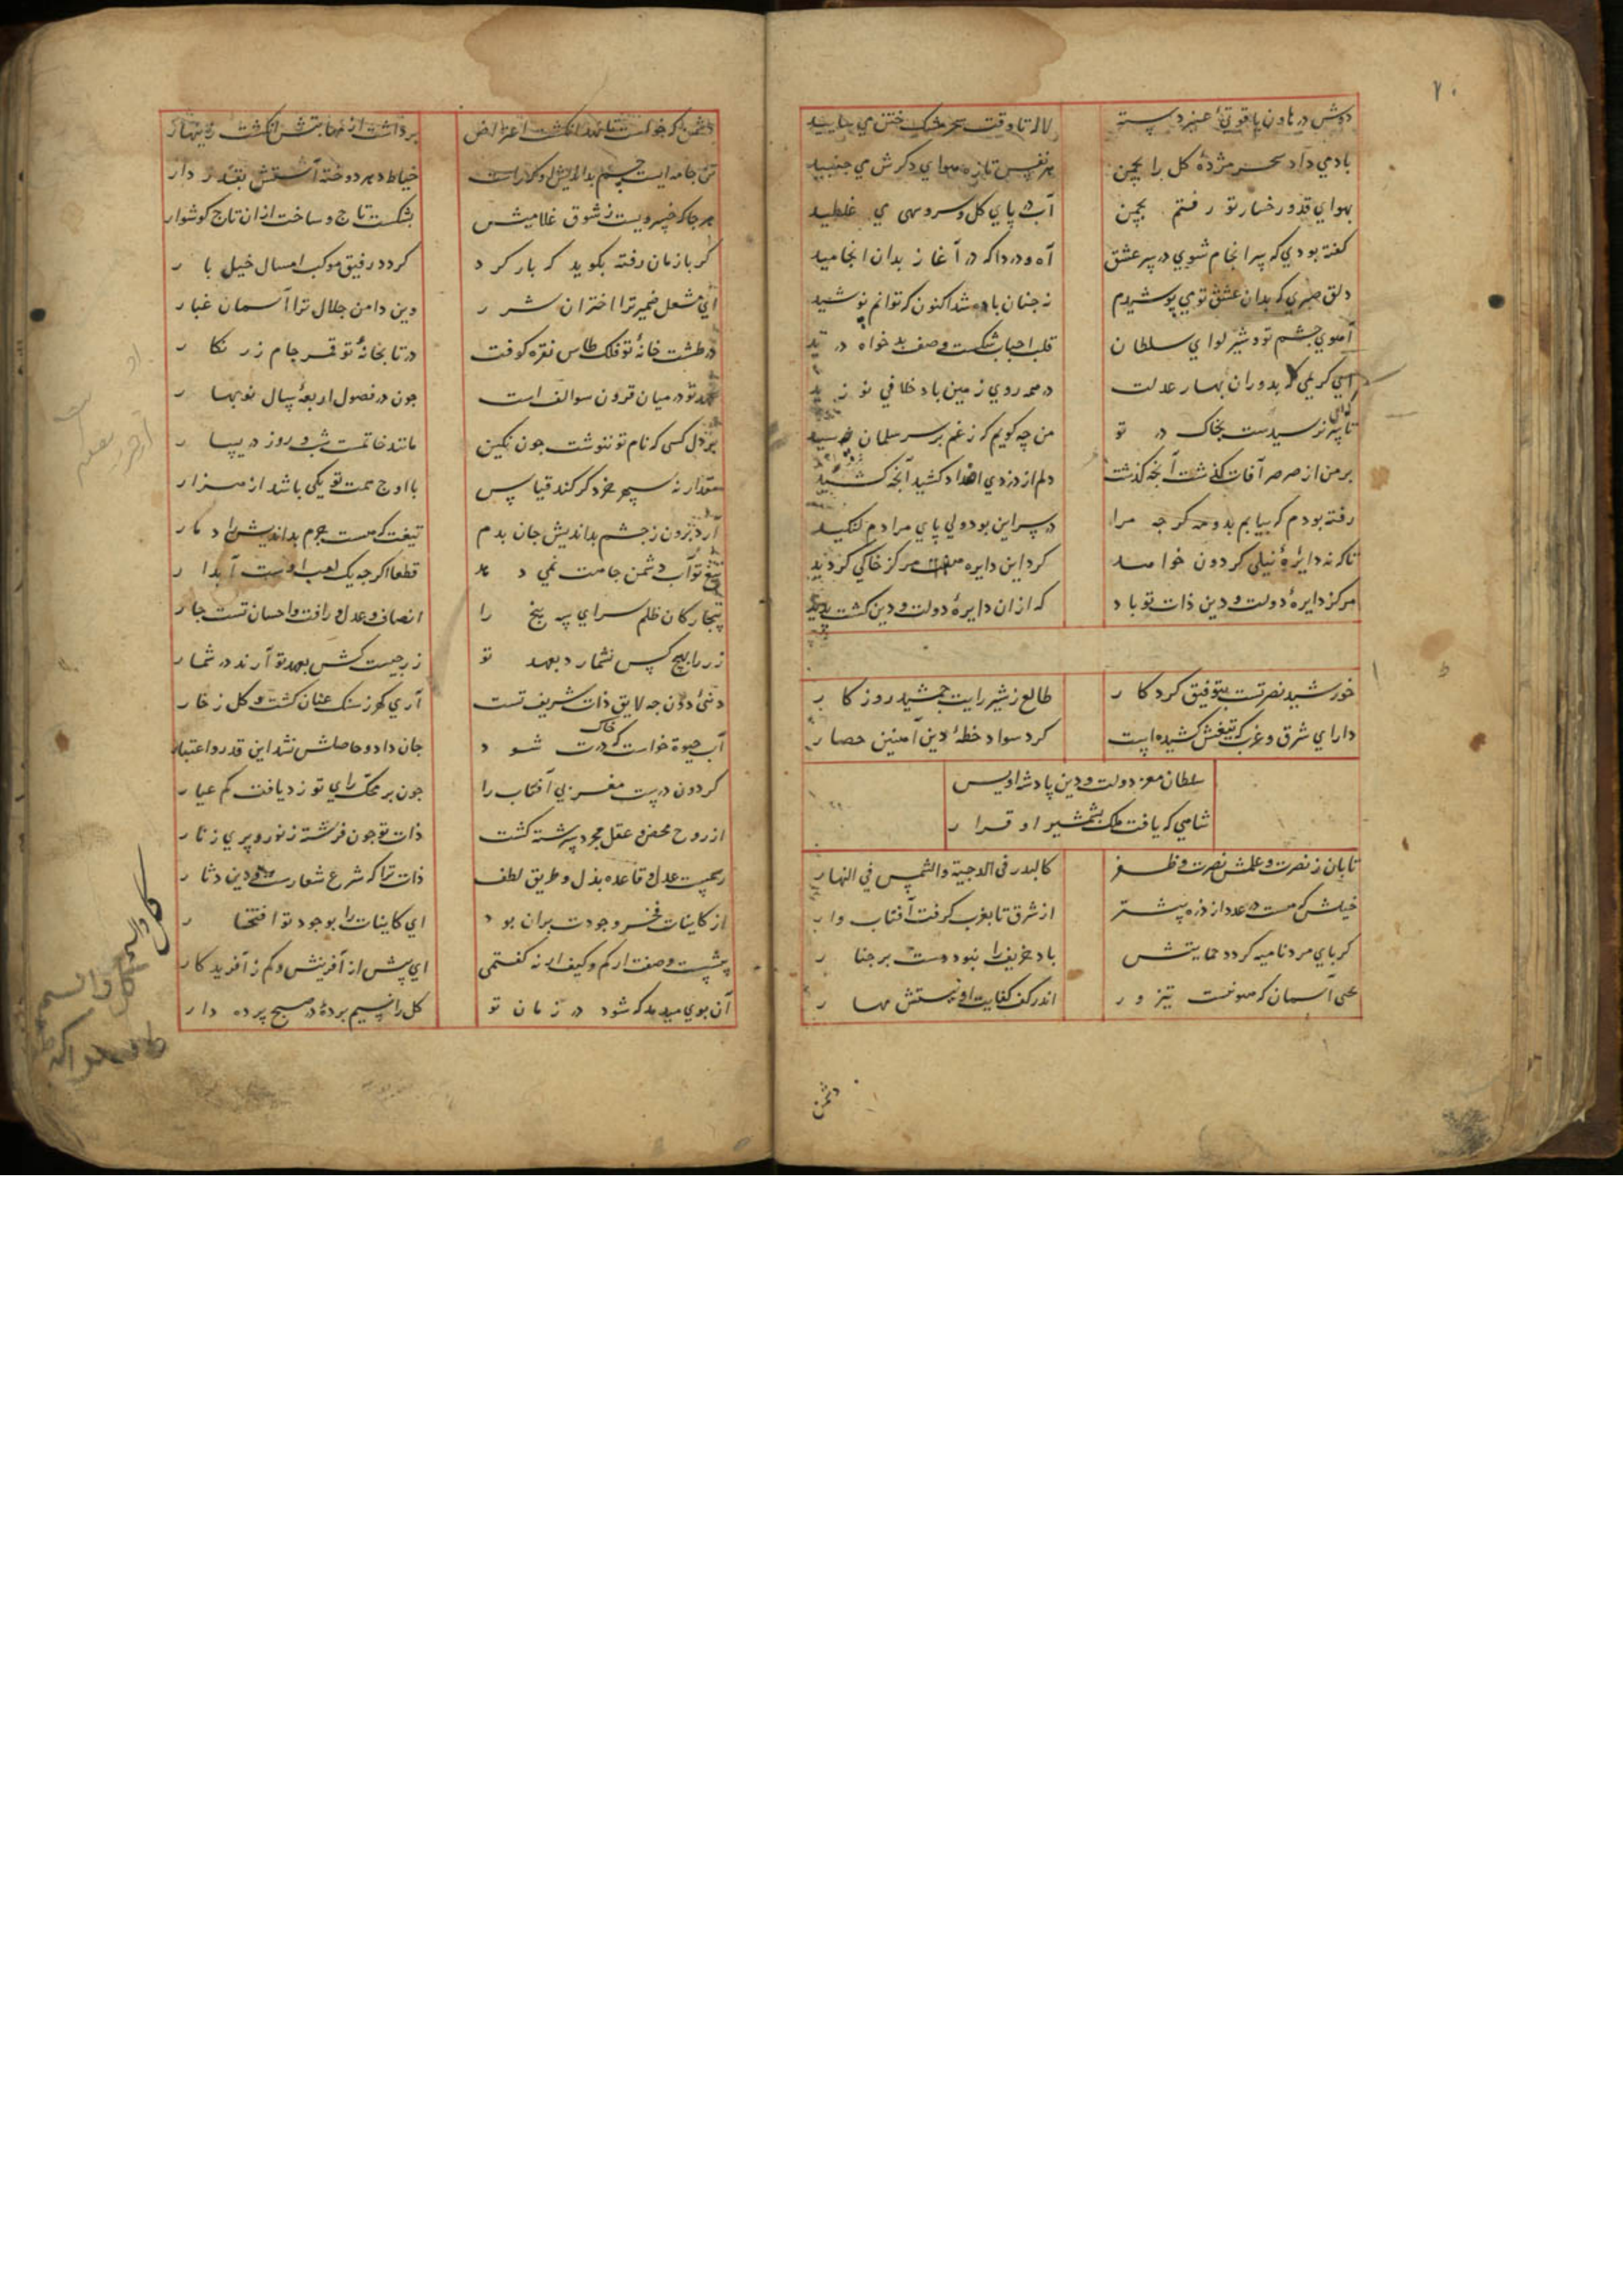 دوش در هاون یاقوتی عنبر دسته	لاله تا وقت سحر مشک ختن می سایید
باد می داد سحر مژده کل را بچمن	هر نفس تازه هوای دکرش می جنبید
بهوای قد و رخسار تو رفتم بچمن	آب در پای کل و سرو سهی می غلطید
کفته بودی که سرانجام شوی در سر عشق	آه و دردا که در آغاز بدان انجامید
دلق صبری که بدان عشق تو می پوشیدم	نه جنان باره شد اکنون که توانم پوشید
آهوی جشم تو و شیر لوای سلطان	قلب احباب شکست و صف بدخواه درید
ای کریمی که بدوران بهار عدلت	در همه روی زمین باد خلافی نوزید
تا سر نرسیدست بخاک در تو	من چه کویم که ز غم بر سر سلمان چه رسید
بر من از صرصر آفات کذشت آنچه کذشت	دلم از دزدی اضداد کشید آنچه کشید
رفته بودم که بیابم بدوم کرجه مرا	در سر این بود ولی پای مرادم لنکید
تا که نه دایرهٔ نیلی کردون خواهند	کرد این دایره هفت مرکز خاکی کردید
مرکز دایرهٔ دولت و دین ذات تو باد	که ازان دایرهٔ دولت و دین کشت پدید
خورشید نصرتست بتوفیق کردکار	طالع ز شیر رایت جمشید روزکار
دارای شرق و غرب که تیغش کشیده است	کرد سواد خطهٔ دین آهنین حصار
سلطان معز دولت و دین پادشه اویس
شاهی که یافت ملک بشمشیر او قرار
تابان ز نصرت و علمش نصرت و ظفر	کالبدر فی الدجیة والشمس فی النهار
خیلش که هست در عدد از ذره بیشتر	از شرق تا بغرب کرفت آفتاب وار
کر پای مرد نامیه کردد حمایتش	باد خریف را نبود دست بر جنار
بختی آسمان که هونست تیز رو	اندر کف کفایت او نیستش مهار
دشمن
دشمن که خواست تا نهد انکشت اعتراض	برداشت از مهابتش انکشت زینهار
تن جامه ایست جسم بداندیش او	خیاط دهر دوخته آنکش بقدر دار
هر جا که خسرویست ز شوق غلامیش	بشکست تاج و ساخت ازان تاج کوشوار
کر باز مان رفته بکوید که بازکرد	کردد رفیق موکب امسال خیل پار
ای مشعل ضمیر ترا اختران شرر	وین دامن جلال ترا آسمان غبار
در طشت خانهٔ تو فلک طاس نقره کوفت	در تابخانهٔ تو قمر جام زرنکار
عهد تو در میان قرون سوالفست	جون در فصول اربعهٔ سال نوبهار
بر دل کسی که نام تو ننوشت جون نکین	مانند خاتمت شب و روز در یسار
مقدار نه سپهر خرد کر کند قیاس	با اوج همت تو یکی باشد از هزار
آرد برون ز جشم بداندیش جان بدم	تیغت که هست جرم بداندیش را دمار
تیغ تو آب دشمن جاهت نمی دهد	قطعا اکرجه یک لعب اوست آبدار
بیجارکان ظلم سرای سپنج را	انصاف و عدل و رافت و احسان تست جار
زر را بهیچ کس نشمارد بعهد تو	زر جیست کش بعهد تو آرند در شمار
دنیٔ دون جه لایق ذات شریف تست	آری کهر ز سنک عنان کشت و کل ز خار
آب حیوة خواست که خاک درت شود	جان داد و حاصلش نشد این قدر و اعتبار
کردون درست مغربی آفتاب را	جون بر محک رای تو زد یافت کم عیار
از روح محض و عقل مجرد سرشته کشت	ذات تو جون فرشته ز نور و پری ز نار
رسمیست عدل و قاعده بذل و طریق لطف	ذات ترا که شرع شعارست و دین دثار
از کاینات فخر وجودت بران بود	ای کاینات را بوجود تو افتخار
بیشست وصفت از کم و کیف ارنه کفتمی	ای بیش از آفرینش و کم ز آفریدکار
آن بوی میدهد که شود در زمان تو	کل را نسیم برده در صبح پرده دار